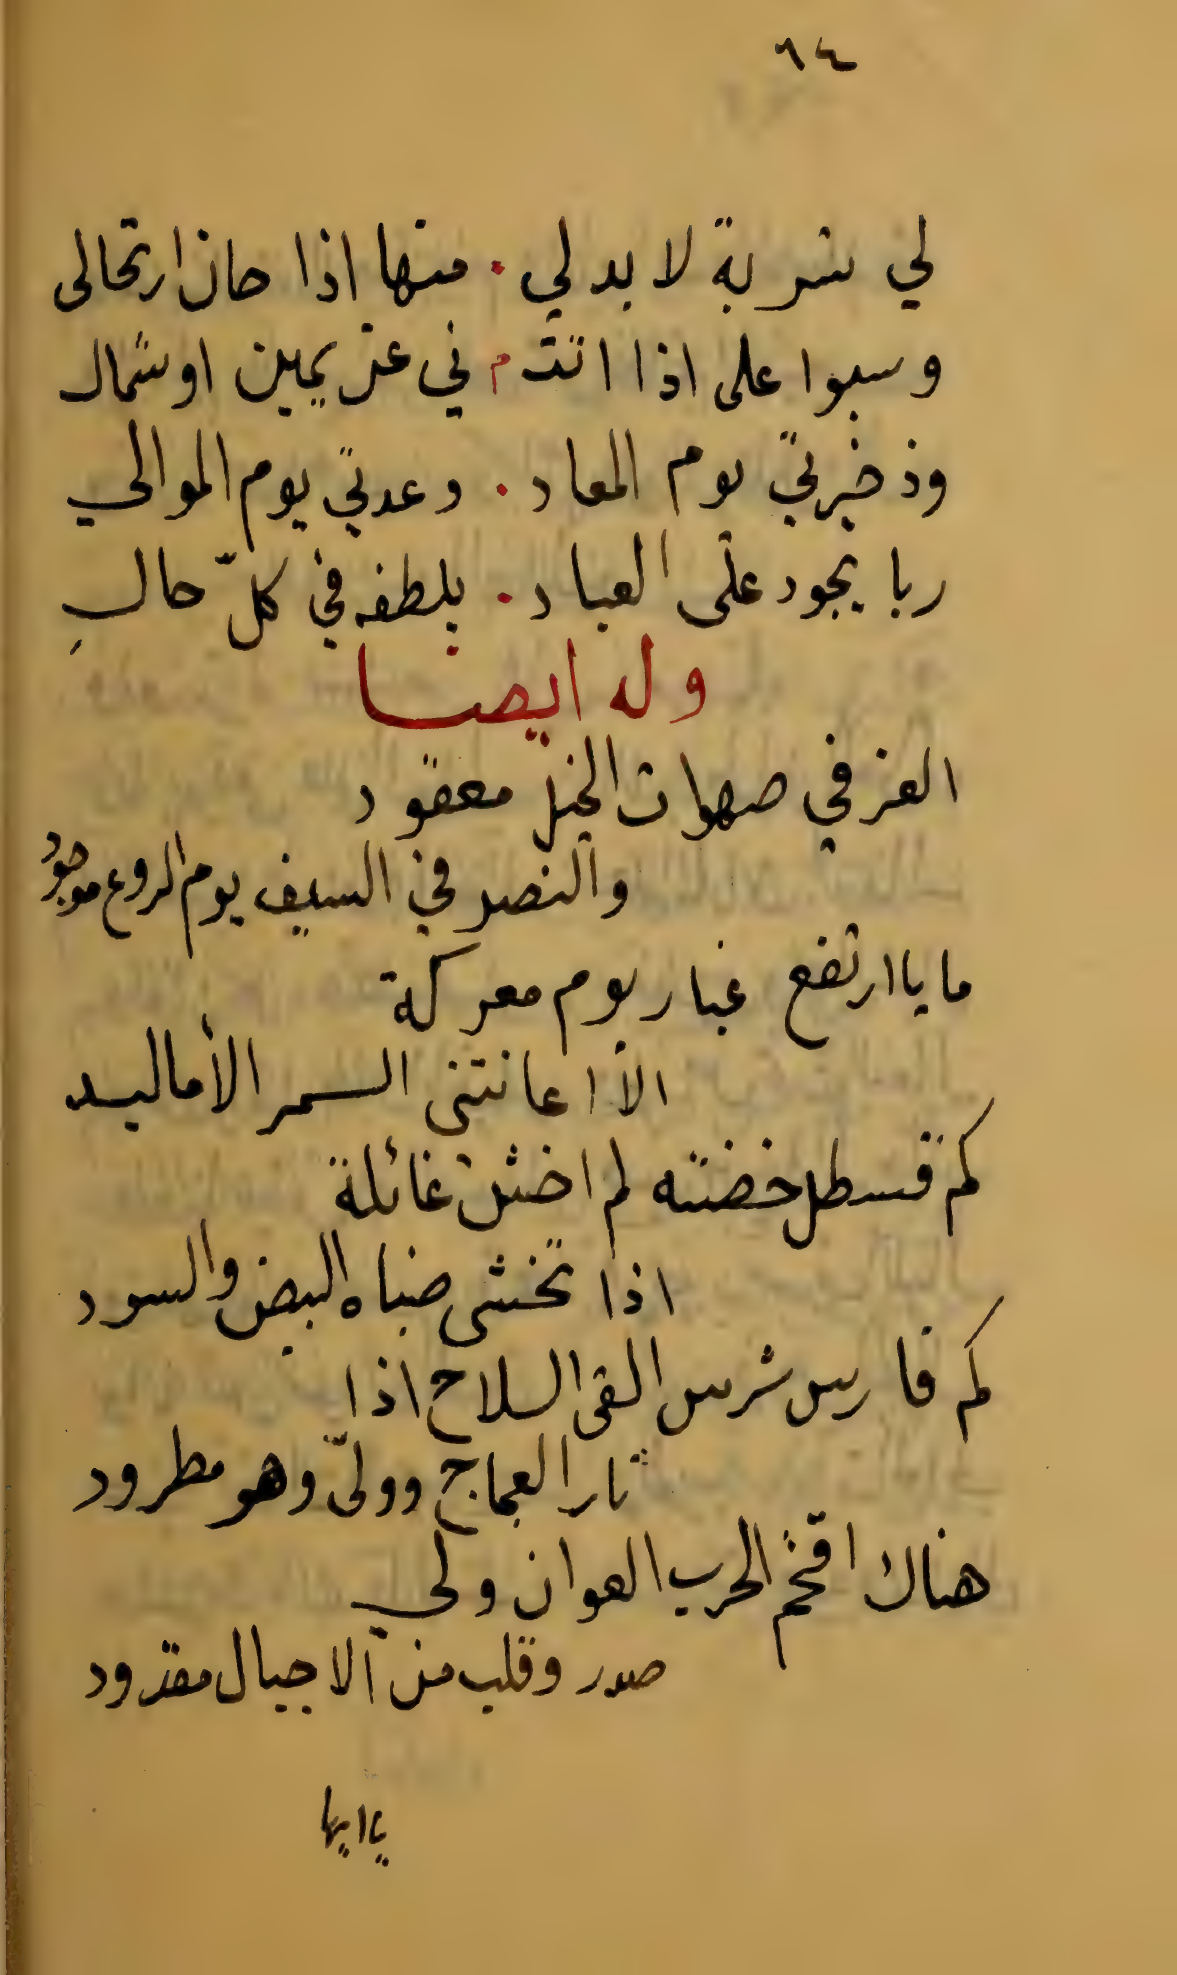 ٦٤
لي شربة لا بد لي . منها اذا حان ارتحالى
وسبوا على اذا اتت م ني عن يمين او شمال
وذخيرتي يوم المعاد . وعدتي يوم الموالي
ربا يجود على العباد . بلطفه في كلّ حالِ
وله ايضا
العز في صهوات الخيل معقود
والنصر في السيف يوم الروع موجود
ما ياارتفع غبار يوم معركة
الا اعانتنى السمر الأماليد
كم قسطل خضته لم اخش غائلة
اذا تخشى ضباه البيض والسود
كم فارس شرس القى السلاح اذا
ثار العجاج وولّى وهو مطرود
هناك اقتحم الحرب العوان ولي
صدر وقلب من الاجبال مقدود
يا ايها